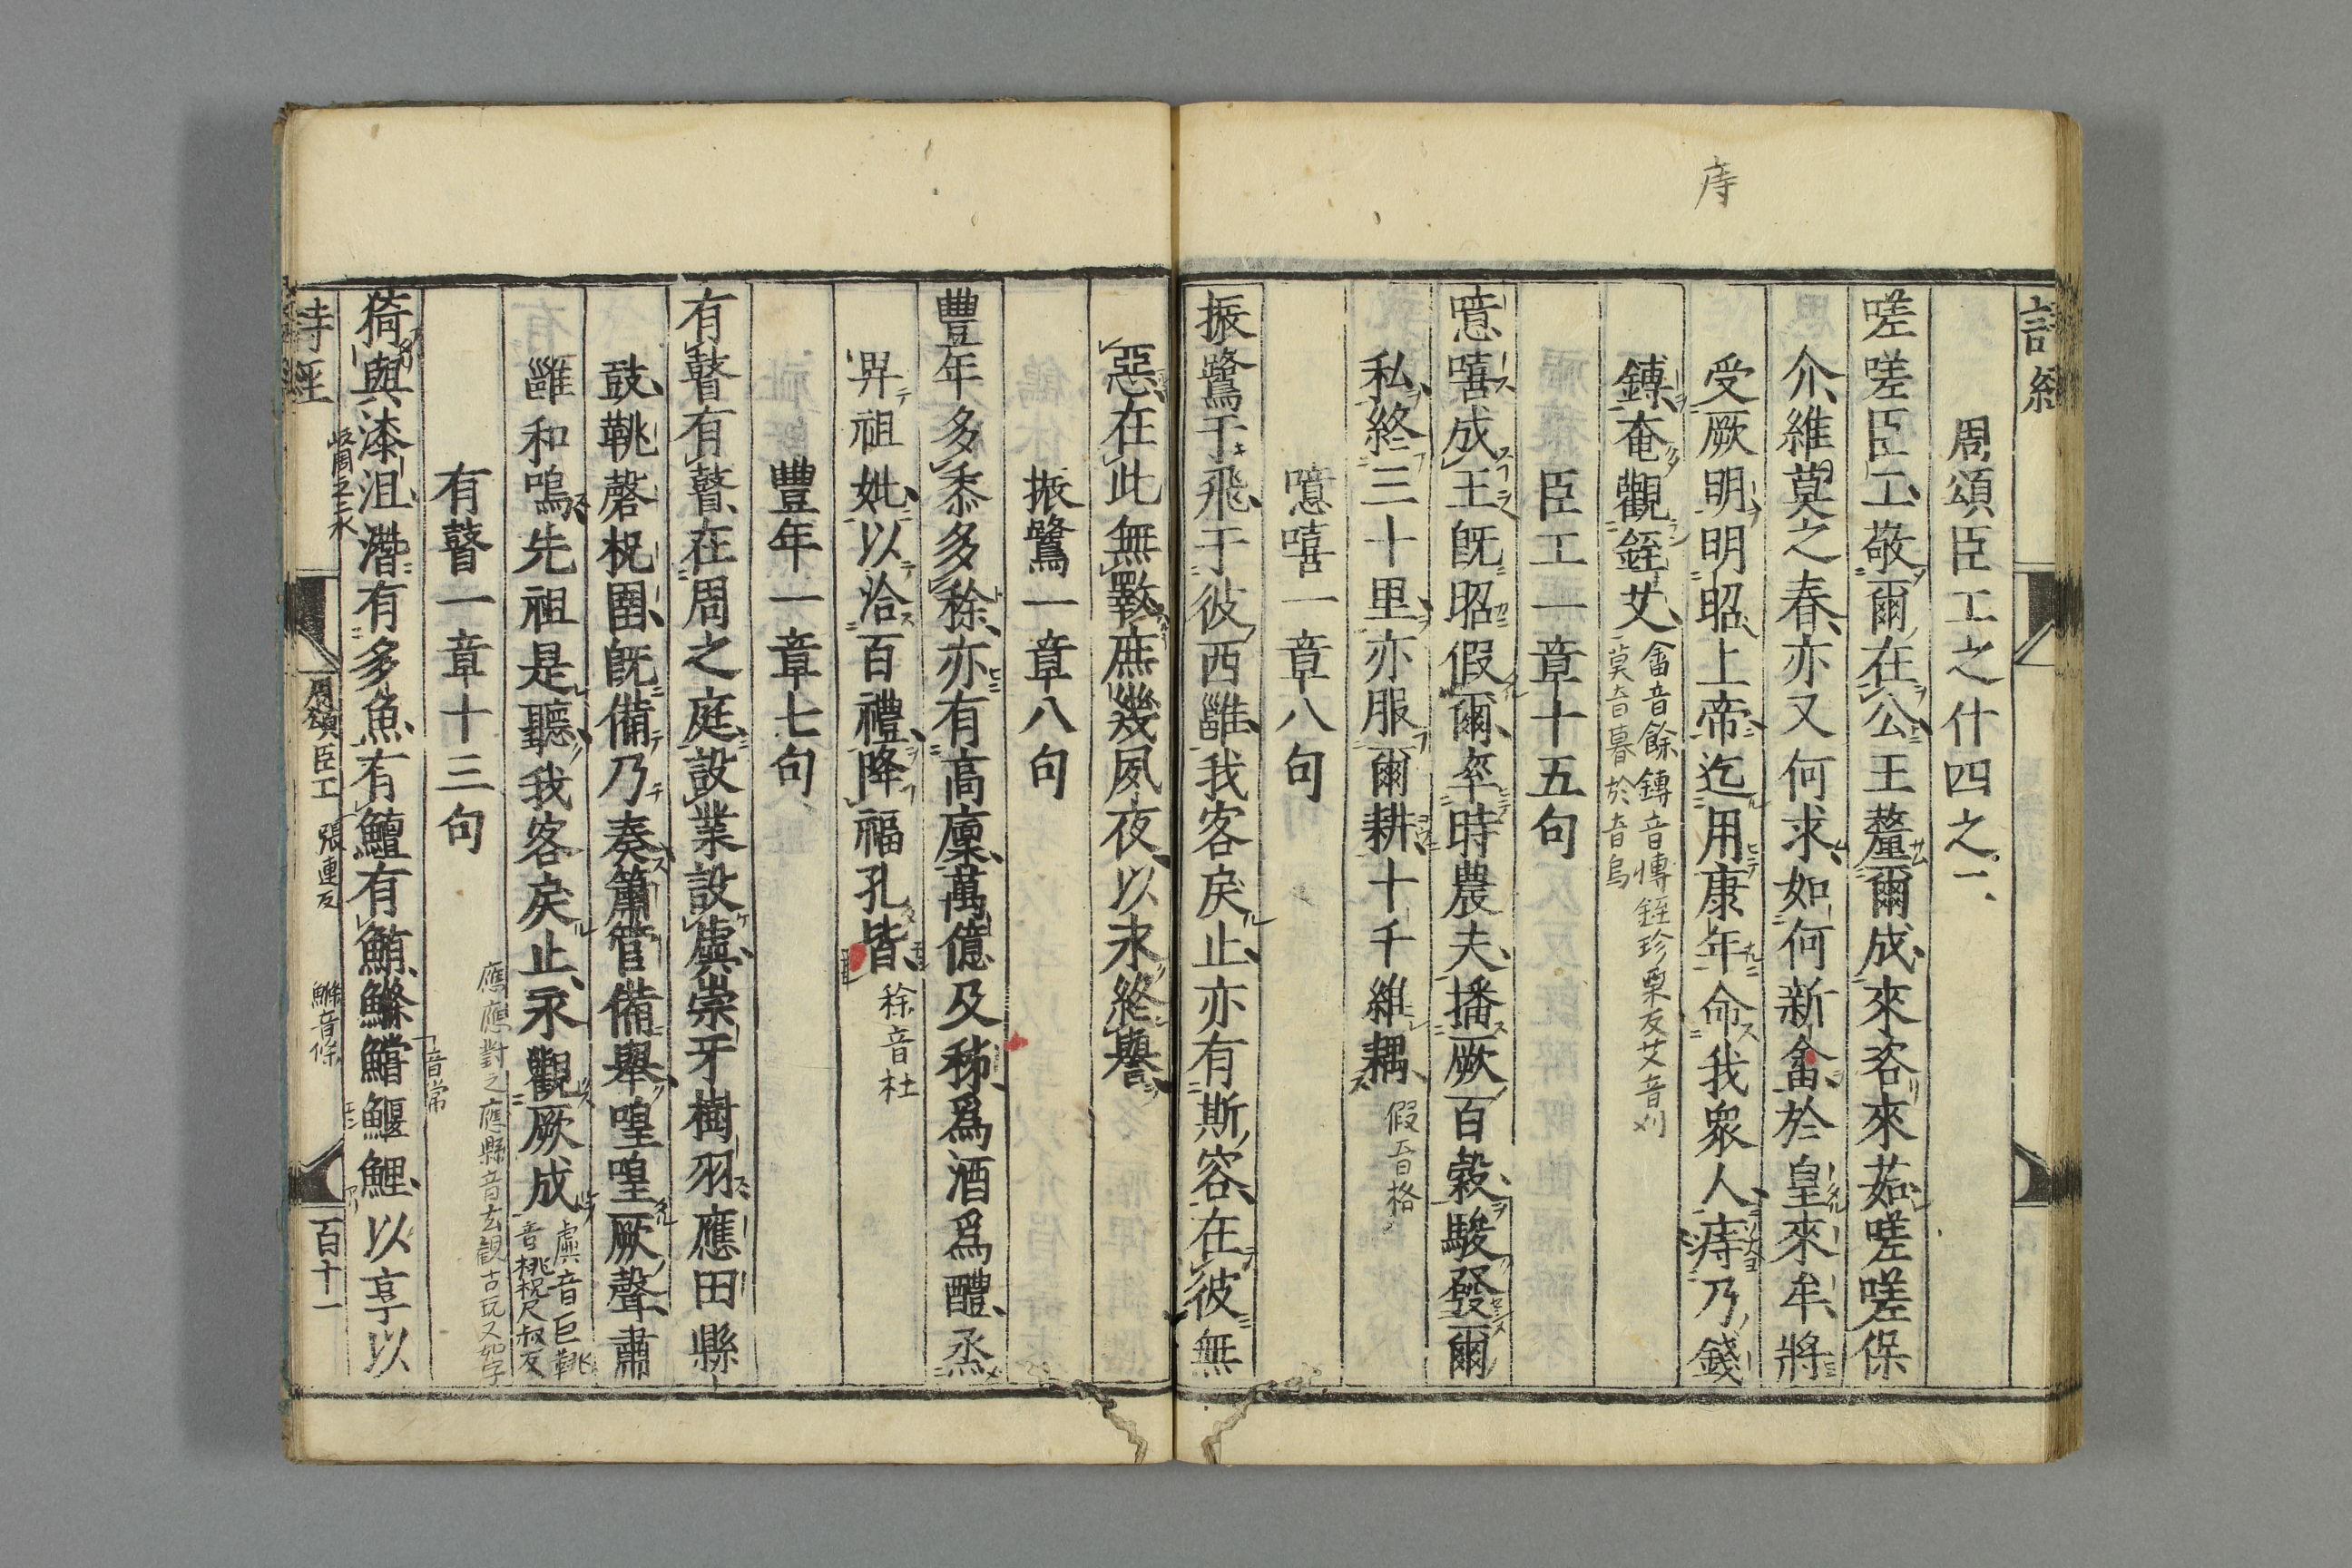 庤
詩經
周頌臣工之什四之二
嗟嗟臣工敬爾在公王釐爾成來咨來茹嗟嗟保
介維莫之春亦又何求如何新畬於皇來牟將
受厥明明昭上帝迄用康年命我衆人庤乃錢
鎛奄觀銍艾
畬音餘鎛音慱銍珍栗反艾音刈
莫音暮於音烏
臣工一章十五句
噫嘻成王旣昭假爾率時農夫播厥百穀駿發爾
私終三十里亦服爾耕十千維耦
假音格
噫嘻一章八句
振鷺于飛于彼西雝我客戾止亦有斯容在彼無
惡在此無斁庶幾夙夜以永終譽
振鷺一章八句
豐年多黍多稌亦有高廩萬億及秭爲酒爲醴烝
畀祖妣以洽百禮降福孔皆
稌音杜
豐年一章七句
有瞽有瞽在周之庭設業設虡崇牙樹羽應田縣
鼓鞉磬柷圉旣備乃奏簫管備舉喤喤厥聲肅
雝和鳴先祖是聽我客戾止永觀厥成
虡音巨鞉
音桃柷尺叔反
應應對之應縣音玄觀古玩又如字
有瞽一章十三句
音常
猗與漆沮潛有多魚有鱣有鮪鰷鱨鰋鯉以享以
岐周之二水
張連反
鰷音條
詩經
周頌臣工
百十一